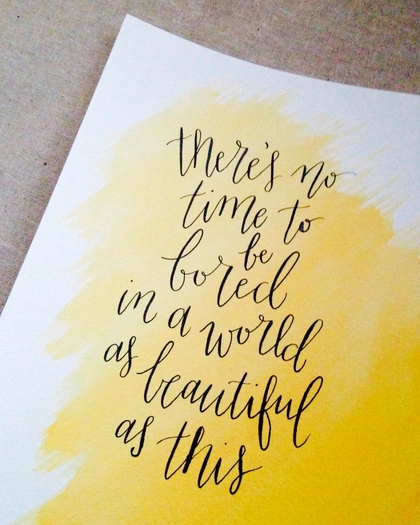 there's no
time to
be
bored
in a world
as beautiful
as this